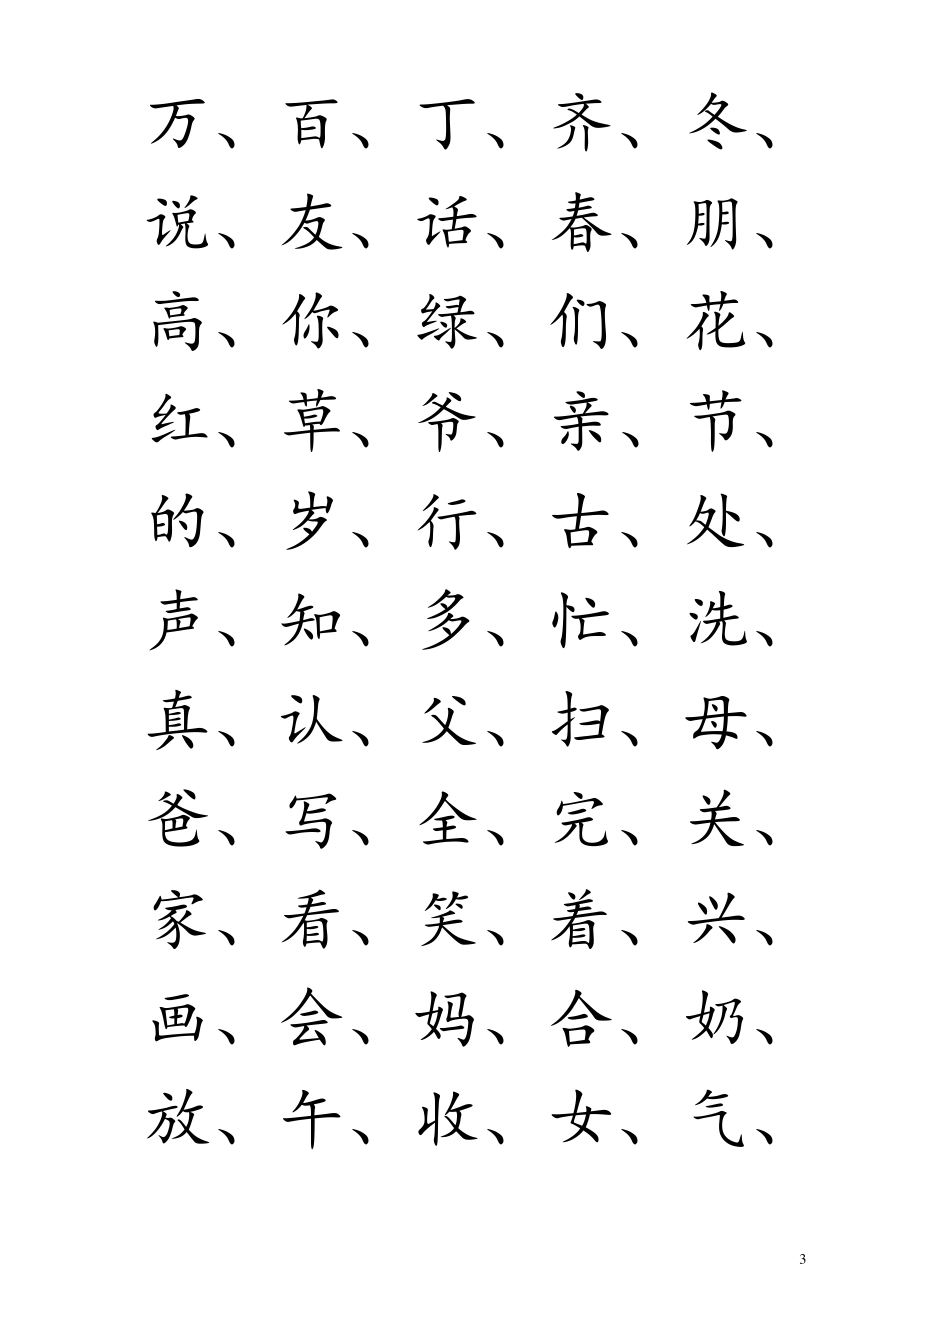 万、百、丁、齐、冬、
说、友、话、春、朋、
高、你、绿、们、花、
红、草、爷、亲、节、
的、岁、行、古、处、
声、知、多、忙、洗、
真、认、父、扫、母、
爸、写、全、完、关、
家、看、笑、着、兴、
画、会、妈、合、奶、
放、午、收、女、气、
3